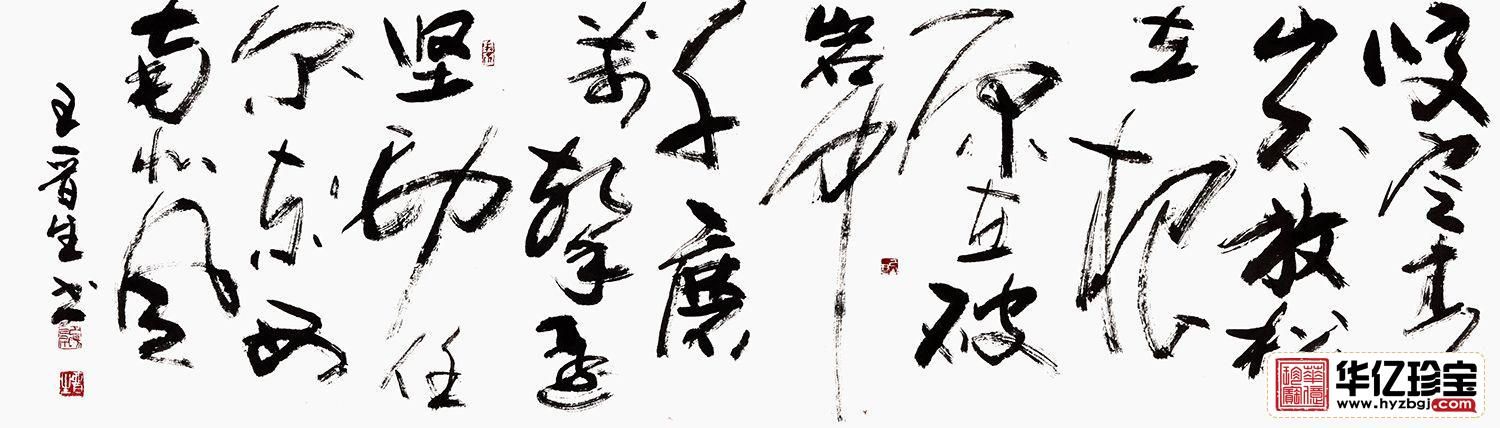 咬定青
山不放松
立根
原在破
岩中
千磨
萬擊還
坚劲任
尔东西
南北风
王晋生书
华亿珍宝
www.hyzbgj.com